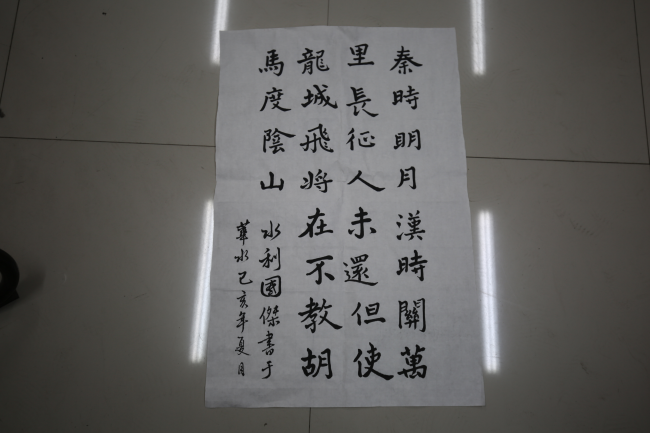 秦時明月漢時關萬
里長征人未還但使
龍城飛將在不教胡
馬度陰山 水利國傑書于
華水己亥年夏月